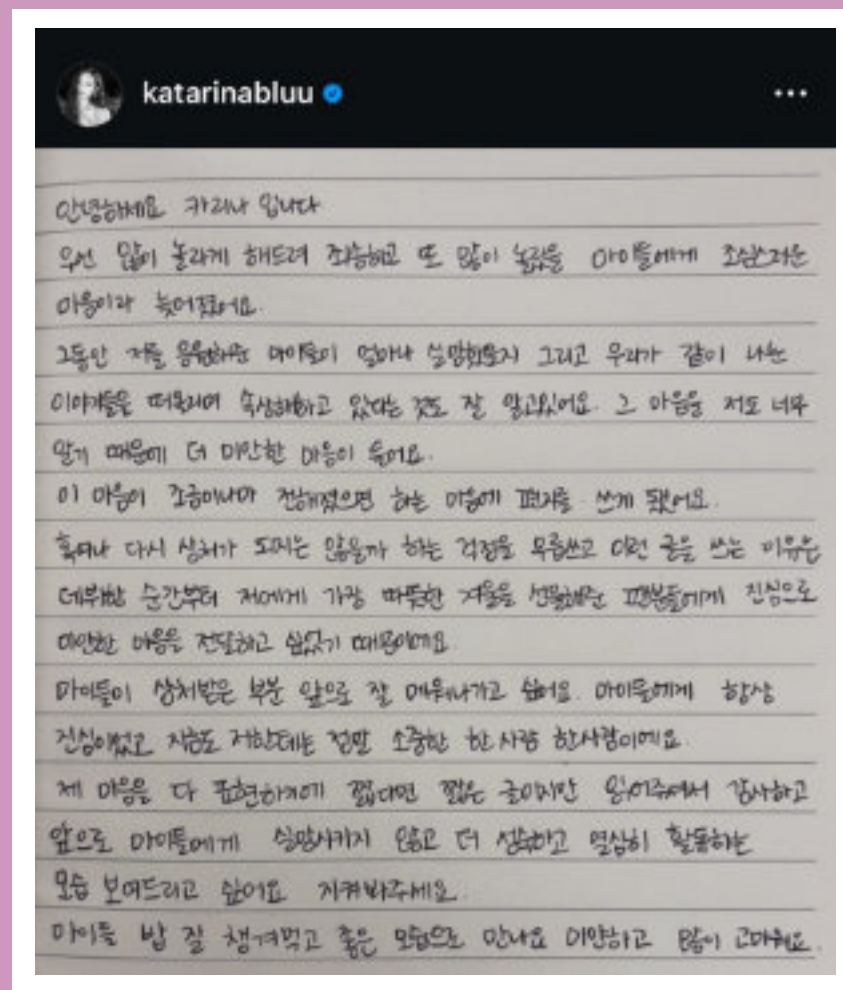 katarinabluu
안녕하세요 카리나 입니다
우선 많이 놀라게 해드려 죄송하고 또 많이 놀랐을 마이들에게 조심스러운
마음이라 늦어졌어요.
그동안 저를 응원해준 마이들이 얼마나 실망했을지 그리고 우리가 같이 나눈
이야기들을 떠올리며 속상해하고 있다는 것도 잘 알고있어요. 그 마음을 저도 너무
알기 때문에 더 미안한 마음이 들어요.
이 마음이 조금이나마 전해졌으면 하는 마음에 편지를 쓰게 됐어요.
혹여나 다시 상처가 되지는 않을까 하는 걱정을 무릅쓰고 이런 글을 쓰는 이유은
데뷔한 순간부터 저에게 가장 따뜻한 겨울을 선물해준 팬분들에게 진심으로
미안한 마음을 전달하고 싶었기 때문이에요.
마이들이 상처받은 부분 앞으로 잘 메워나가고 싶어요. 마이들에게 항상
진심이었고 지금도 저한테는 정말 소중한 한 사람 한사람이에요.
제 마음을 다 표현하기에 짧다면 짧은 글이지만 읽어주셔서 감사하고
앞으로 마이들에게 실망시키지 않고 더 성숙하고 열심히 활동하는
모습 보여드리고 싶어요 지켜봐주세요.
마이들 밥 잘 챙겨먹고 좋은 모습으로 만나요 미안하고 많이 고마워요.